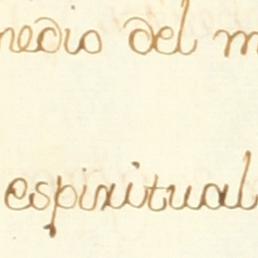 medio del m
espiritual